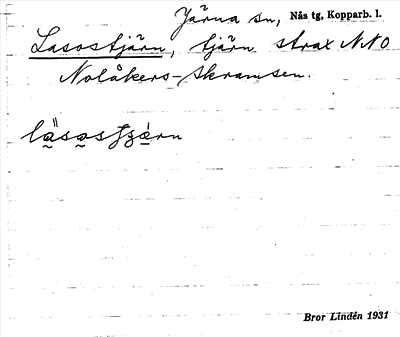 Järna sn, Nås tg, Kopparb. l.
Lasostjärn, tjärn strax NNO
Nolåkers-skramsen.
Bror Lindén 1931